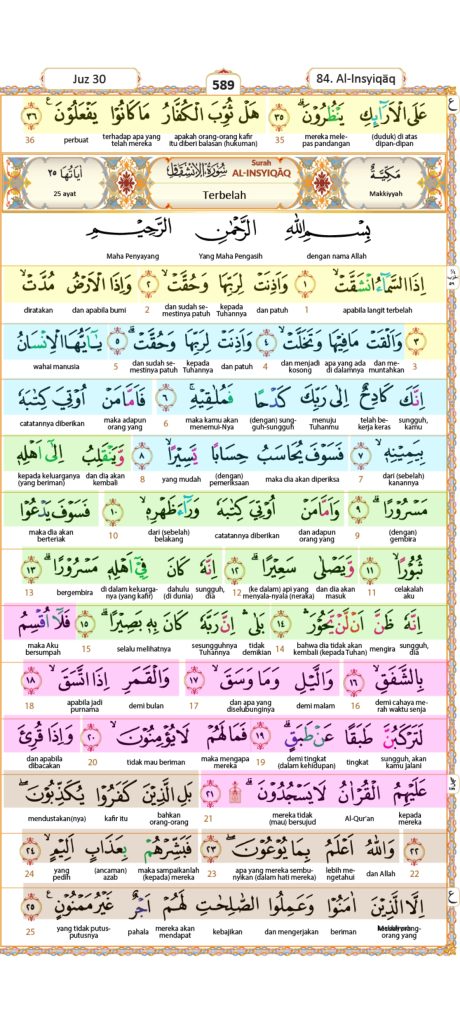 Juz 30
589
84. Al-Insyiqāq
عَلَى الْاَرَاۤىِٕكِ يَنْظُرُوْنَۗ ٣٥ هَلْ ثُوِّبَ الْكُفَّارُ مَا كَانُوْا يَفْعَلُوْنَ ٣٦
(duduk) di atas dipan-dipan mereka mele-pas pandangan 35 apakah orang-orang kafir itu diberi balasan (hukuman) terhadap apa yang telah mereka perbuat 36
مَكِّيَّةٌ سُوْرَةُ الْاِنْشِقَاقِ اٰيَاتُهَا ٢٥
Makkiyyah Surah AL-INSYIQĀQ Terbelah 25 ayat
بِسْمِ اللّٰهِ الرَّحْمٰنِ الرَّحِيْمِ
dengan nama Allah Yang Maha Pengasih Maha Penyayang
اِذَا السَّمَاۤءُ انْشَقَّتْۙ ١ وَاَذِنَتْ لِرَبِّهَا وَحُقَّتْۙ ٢ وَاِذَا الْاَرْضُ مُدَّتْۙ
apabila langit terbelah 1 dan patuh kepada Tuhannya dan sudah se-mestinya patuh 2 dan apabila bumi diratakan
٣ وَاَلْقَتْ مَا فِيْهَا وَتَخَلَّتْۙ ٤ وَاَذِنَتْ لِرَبِّهَا وَحُقَّتْۗ ٥ يٰٓاَيُّهَا الْاِنْسَانُ
3 dan me-muntahkan apa yang ada di dalamnya dan menjadi kosong 4 dan patuh kepada Tuhannya dan sudah se-mestinya patuh 5 wahai manusia
اِنَّكَ كَادِحٌ اِلٰى رَبِّكَ كَدْحًا فَمُلٰقِيْهِۚ ٦ فَاَمَّا مَنْ اُوْتِيَ كِتٰبَهٗ
sungguh, kamu telah be-kerja keras menuju Tuhanmu (dengan) sung-guh-sungguh maka kamu akan menemui-Nya 6 maka adapun orang yang catatannya diberikan
بِيَمِيْنِهٖۙ ٧ فَسَوْفَ يُحَاسَبُ حِسَابًا يَّسِيْرًاۙ ٨ وَّيَنْقَلِبُ اِلٰٓى اَهْلِهٖ
dari (sebelah) kanannya 7 maka dia akan diperiksa (dengan) pemeriksaan yang mudah 8 dan dia akan kembali kepada keluarganya (yang beriman)
مَسْرُوْرًاۗ ٩ وَاَمَّا مَنْ اُوْتِيَ كِتٰبَهٗ وَرَاۤءَ ظَهْرِهٖۙ ١٠ فَسَوْفَ يَدْعُوْا
(dengan) gembira 9 dan adapun orang yang catatannya diberikan dari (sebelah) belakang 10 maka dia akan berteriak
ثُبُوْرًاۙ ١١ وَّيَصْلٰى سَعِيْرًاۗ ١٢ اِنَّهٗ كَانَ فِيْٓ اَهْلِهٖ مَسْرُوْرًاۗ ١٣
celakalah aku 11 dan dia akan masuk (ke dalam) api yang menyala-nyala (neraka) 12 sungguh, dia dahulu (di dunia) di dalam keluarga-nya (yang kafir) bergembira 13
اِنَّهٗ ظَنَّ اَنْ لَّنْ يَّحُوْرَۛ ١٤ بَلٰىۛ اِنَّ رَبَّهٗ كَانَ بِهٖ بَصِيْرًاۗ ١٥ فَلَآ اُقْسِمُ
sungguh, dia mengira bahwa dia tidak akan kembali (kepada Tuhan) 14 tidak demikian sesungguhnya Tuhannya selalu melihatnya 15 maka Aku bersumpah
بِالشَّفَقِۙ ١٦ وَالَّيْلِ وَمَا وَسَقَۙ ١٧ وَالْقَمَرِ اِذَا اتَّسَقَۙ ١٨
demi cahaya me-rah waktu senja 16 demi malam dan apa yang diselubunginya 17 demi bulan apabila jadi purnama 18
لَتَرْكَبُنَّ طَبَقًا عَنْ طَبَقٍۗ ١٩ فَمَا لَهُمْ لَا يُؤْمِنُوْنَۙ ٢٠ وَاِذَا قُرِئَ
sungguh, akan kamu jalani tingkat demi tingkat (dalam kehidupan) 19 maka mengapa mereka tidak mau beriman 20 dan apabila dibacakan
عَلَيْهِمُ الْقُرْاٰنُ لَا يَسْجُدُوْنَۗ ۩ ٢١ بَلِ الَّذِيْنَ كَفَرُوْا يُكَذِّبُوْنَۖ
kepada mereka Al-Qur'an mereka tidak (mau) bersujud 21 bahkan orang-orang kafir itu mendustakan(nya)
٢٢ وَاللّٰهُ اَعْلَمُ بِمَا يُوْعُوْنَۖ ٢٣ فَبَشِّرْهُمْ بِعَذَابٍ اَلِيْمٍۙ ٢٤
22 dan Allah lebih me-ngetahui apa yang mereka sembu-nyikan (dalam hati mereka) 23 maka sampaikanlah (kepada) mereka (ancaman) azab yang pedih 24
اِلَّا الَّذِيْنَ اٰمَنُوْا وَعَمِلُوا الصّٰلِحٰتِ لَهُمْ اَجْرٌ غَيْرُ مَمْنُوْنٍ ٢٥
orang yang beriman dan mengerjakan kebajikan mereka akan mendapat pahala yang tidak putus-putusnya 25